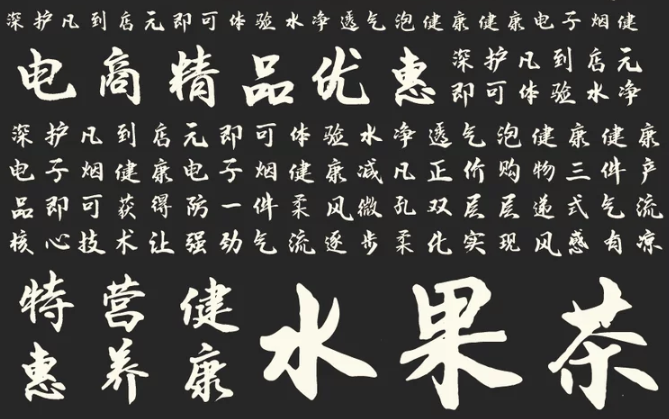 深护凡到店元即可体验水净透气泡健康健康电子烟健
电商精品优惠
深护凡到店元
即可体验水净
深护凡到店元即可体验水净透气泡健康健康
电子烟健康电子烟健康减凡正价购物三件产
品即可获得防一件柔风微孔双层层递式气流
核心技术让强劲气流逐步柔化实现风感有凉
特营健
惠养康
水果茶